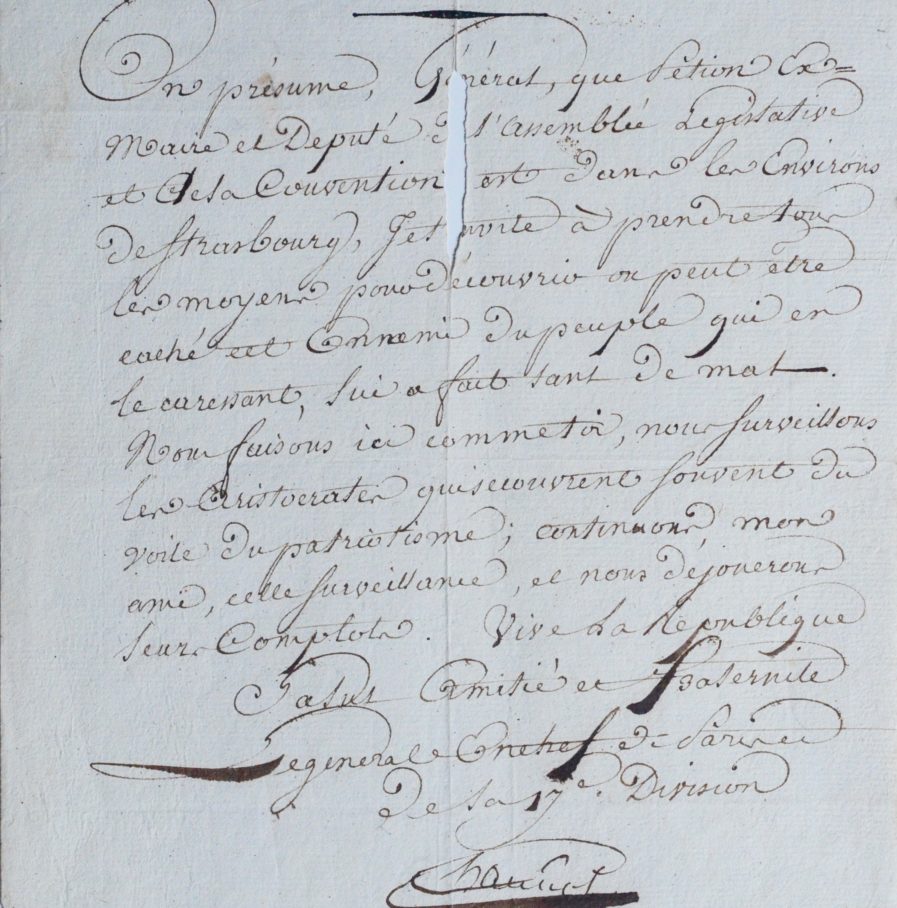 On présume, Général, que Pétion Ex=
Maire et Deputé à l'assemblée Legislative
et de la Convention est dans les Environs
de strasbourg, Je t'invite à prendre tous
les moyens pour découvrir ou peut être
caché cet Ennemi du peuple qui en
le caressant, lui a fait tant de mal.
Nous faisons ici comme toi, nous surveillons
les Aristocrates qui se couvrent souvent du
voile du patriotisme; continuons, mon
ami, cette surveillance, et nous déjouerons
leurs Complots. Vive La République
Salut Amitié et Fraternité
Le général En chef de Paris et
de la 17e. Division